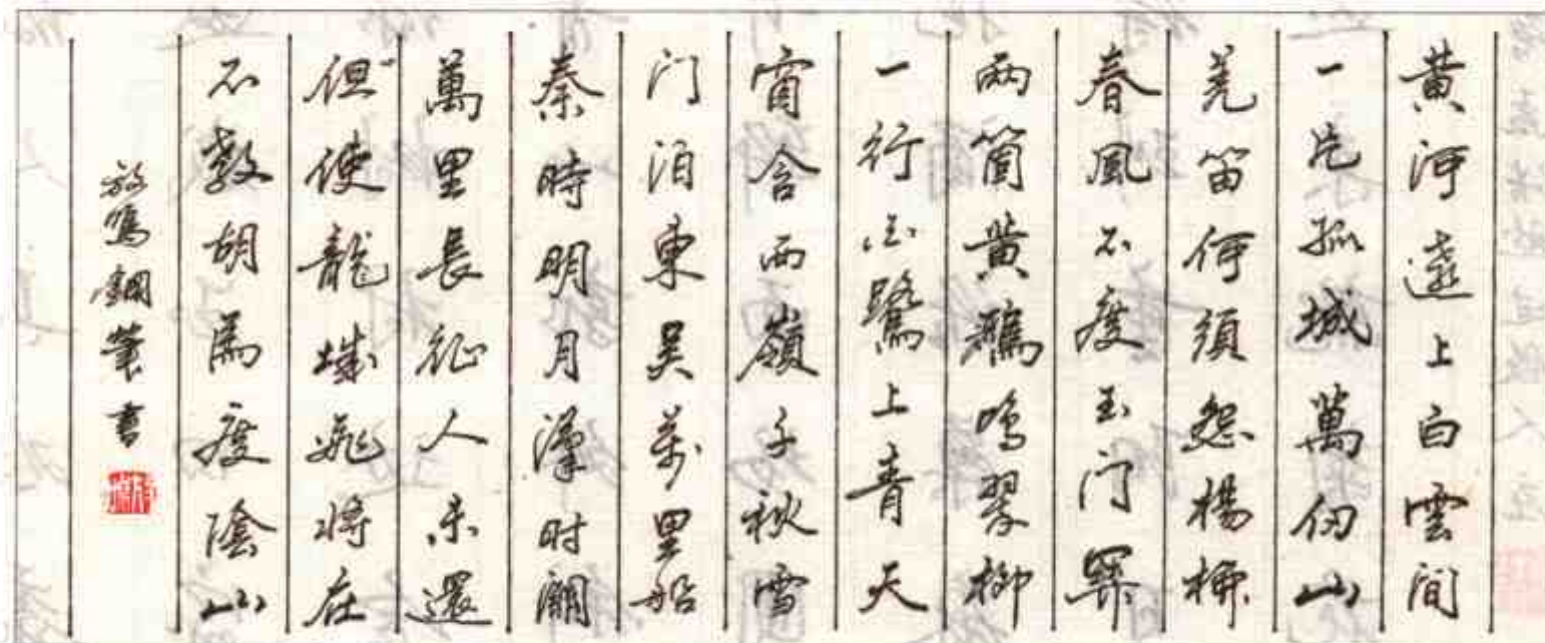 黄河遠上白雲间
一片孤城萬仞山
羌笛何須怨楊柳
春風不度玉门關
兩箇黄鸝鸣翠柳
一行白鷺上青天
窗含西嶺千秋雪
门泊東吴萬里船
秦時明月漢时關
萬里長征人未還
但使龍城飛将在
不教胡馬度陰山
鋼筆書